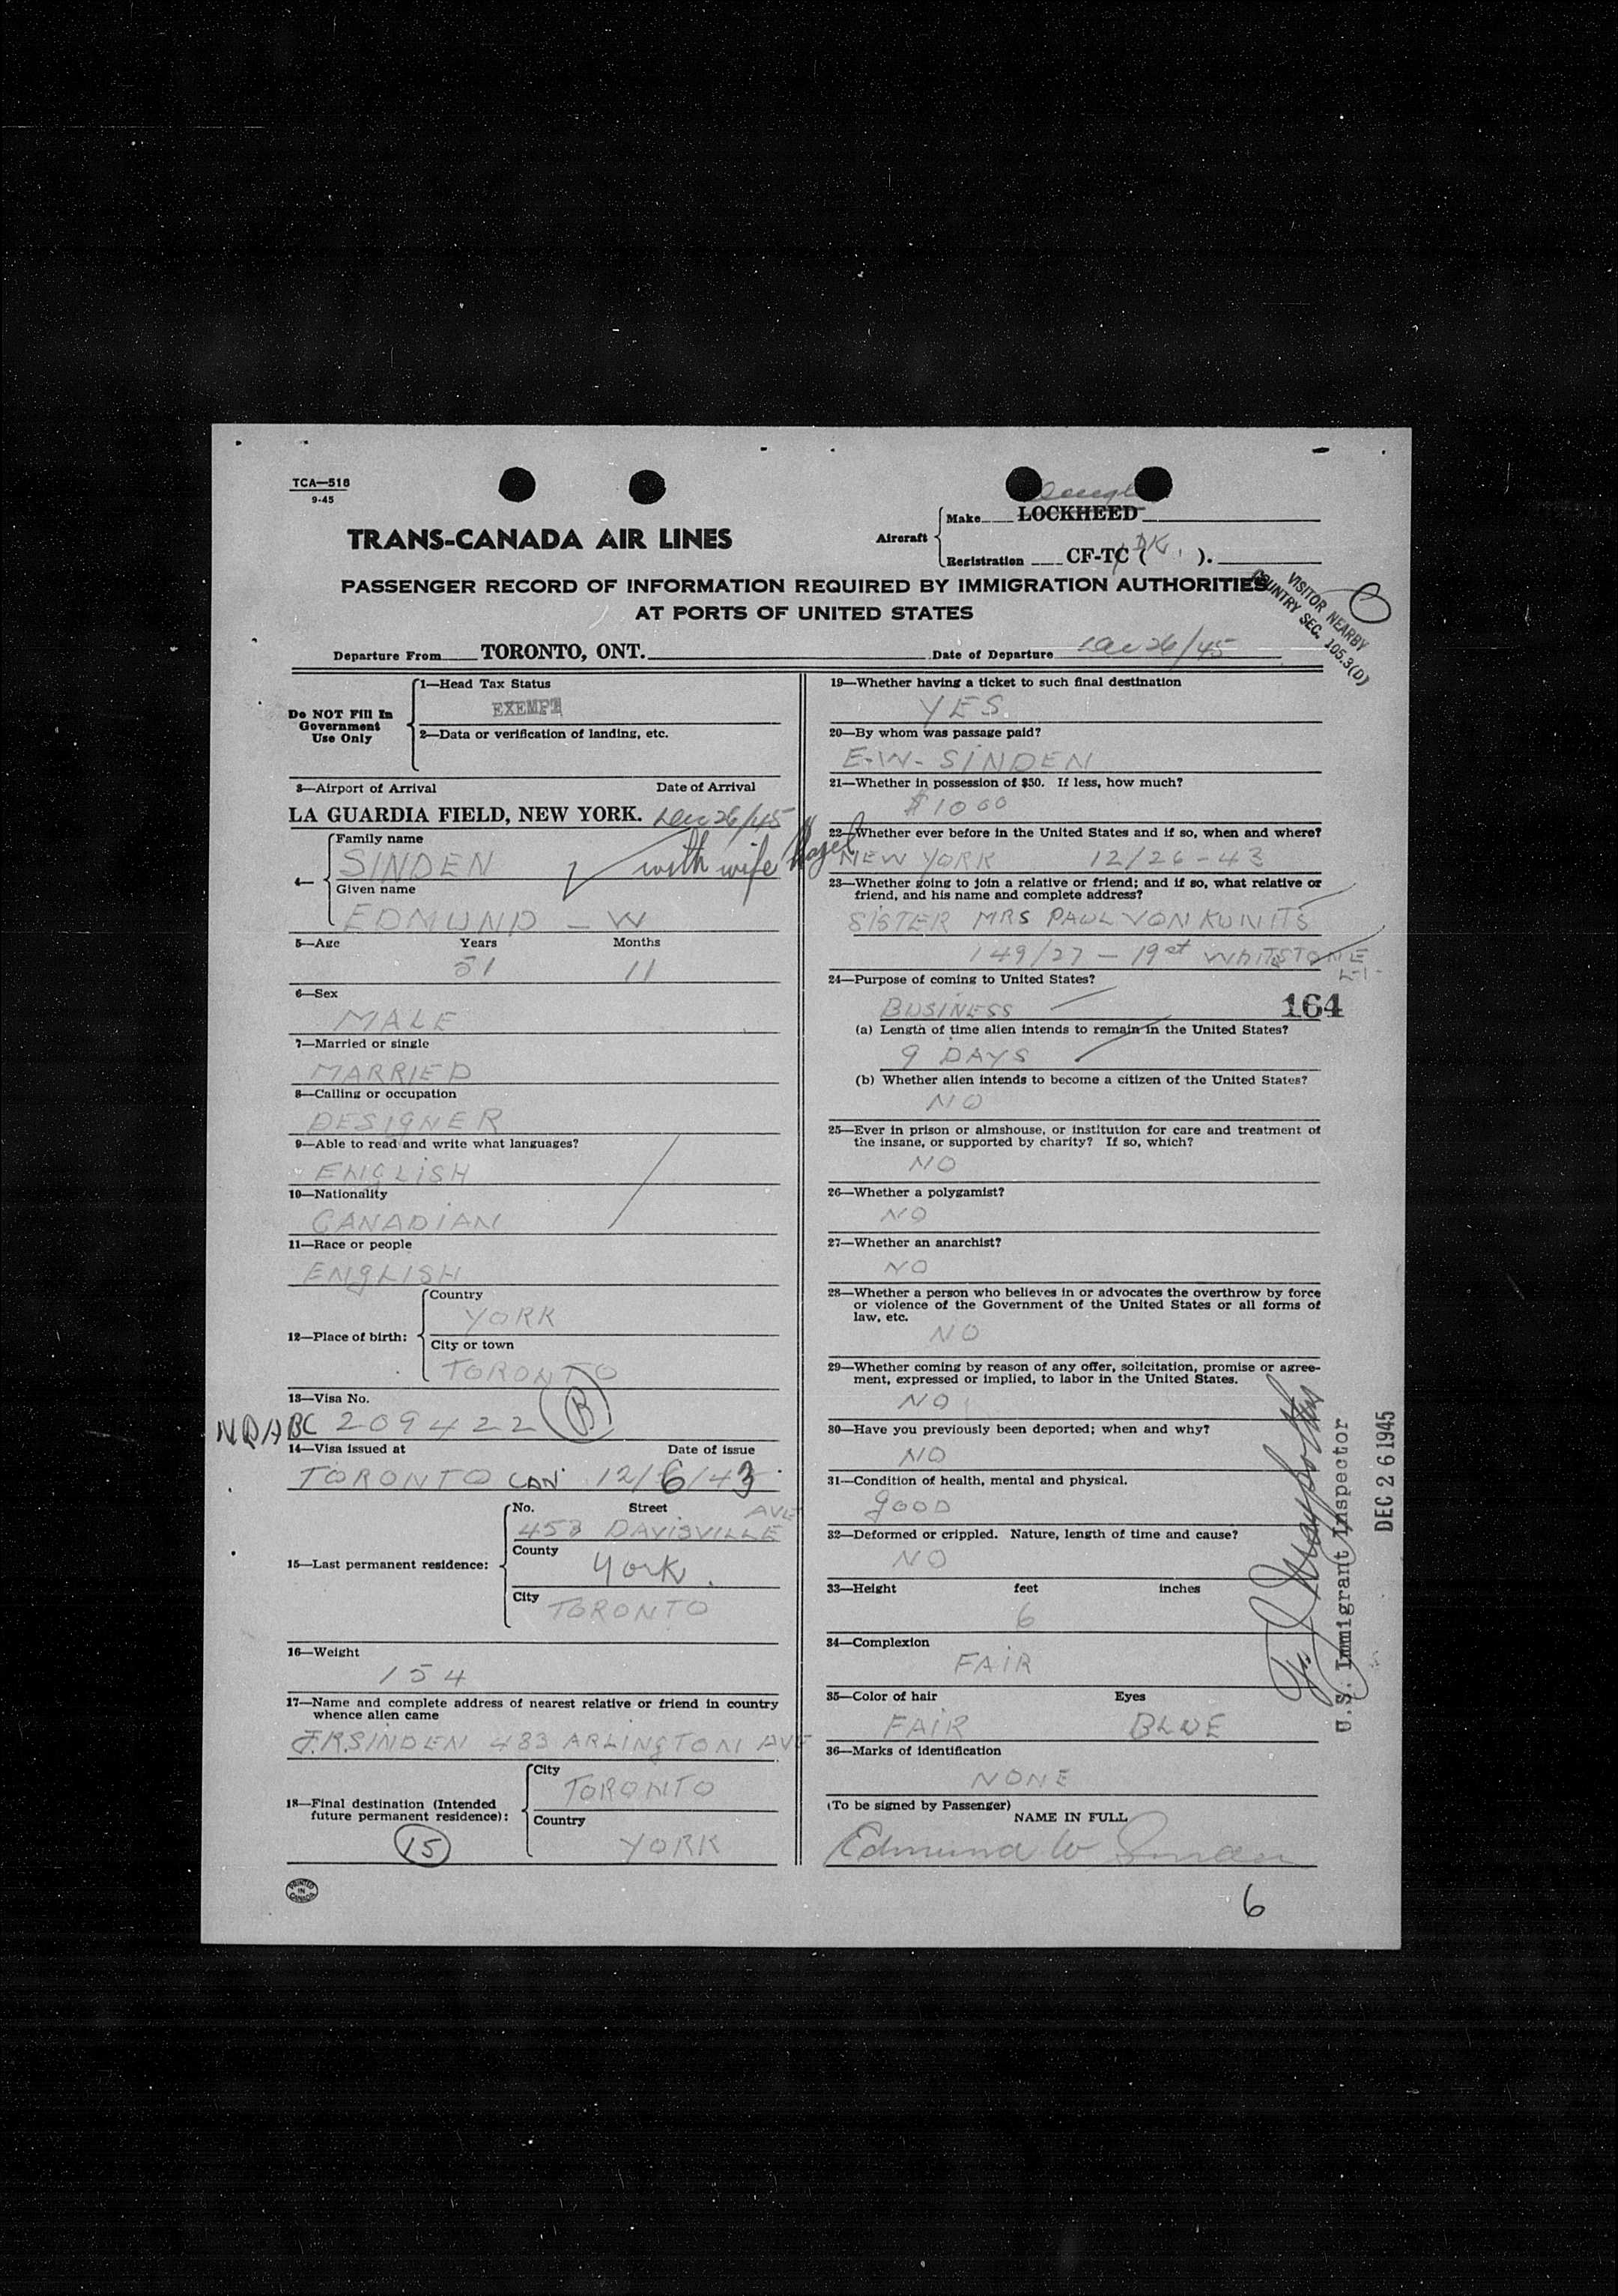 TCA—518
9-45
TRANS-CANADA AIR LINES
Aircraft
Make LOCKHEED
Registration CF-TC ( DK. ).
PASSENGER RECORD OF INFORMATION REQUIRED BY IMMIGRATION AUTHORITIES
AT PORTS OF UNITED STATES
VISITOR NEARBY
COUNTRY SEC. 105.3(D)
Departure From TORONTO, ONT. Date of Departure Dec 26/45
Do NOT Fill In
Government
Use Only
1—Head Tax Status
EXEMPT
2—Data or verification of landing, etc.
3—Airport of Arrival Date of Arrival
LA GUARDIA FIELD, NEW YORK. Dec 26/45
4—
Family name
SINDEN with wife Hazel
Given name
EDMUND - W
5—Age Years Months
51 11
6—Sex
MALE
7—Married or single
MARRIED
8—Calling or occupation
DESIGNER
9—Able to read and write what languages?
ENGLISH
10—Nationality
CANADIAN
11—Race or people
ENGLISH
12—Place of birth:
Country
YORK
City or town
TORONTO
13—Visa No.
NRABC 209422 B
14—Visa issued at Date of issue
TORONTO CAN 12/6/43
15—Last permanent residence:
No. Street AVE
453 DAVISVILLE
County
York.
City
TORONTO
16—Weight
154
17—Name and complete address of nearest relative or friend in country
whence alien came
J.R.SINDEN 483 ARLINGTON AVE
18—Final destination (Intended
future permanent residence):
City
TORONTO
Country
YORK
15
PRINTED
IN
CANADA
19—Whether having a ticket to such final destination
YES
20—By whom was passage paid?
E-W- SINDEN
21—Whether in possession of $50. If less, how much?
$10 00
22—Whether ever before in the United States and if so, when and where?
NEW YORK 12/26-43
23—Whether going to join a relative or friend; and if so, what relative or
friend, and his name and complete address?
SISTER MRS PAUL VON KUNITS
149/27 - 19st WHITSTONE
L-I-
24—Purpose of coming to United States?
BUSINESS
164
(a) Length of time alien intends to remain in the United States?
9 DAYS
(b) Whether alien intends to become a citizen of the United States?
NO
25—Ever in prison or almshouse, or institution for care and treatment of
the insane, or supported by charity? If so, which?
NO
26—Whether a polygamist?
NO
27—Whether an anarchist?
NO
28—Whether a person who believes in or advocates the overthrow by force
or violence of the Government of the United States or all forms of
law, etc.
NO
29—Whether coming by reason of any offer, solicitation, promise or agree-
ment, expressed or implied, to labor in the United States.
NO
30—Have you previously been deported; when and why?
NO
31—Condition of health, mental and physical.
GOOD
32—Deformed or crippled. Nature, length of time and cause?
NO
33—Height feet inches
6
34—Complexion
FAIR
35—Color of hair Eyes
FAIR BLUE
36—Marks of identification
NONE
(To be signed by Passenger)
NAME IN FULL
Edmund W Sinden
U.S. Immigrant Inspector
DEC 26 1945
6